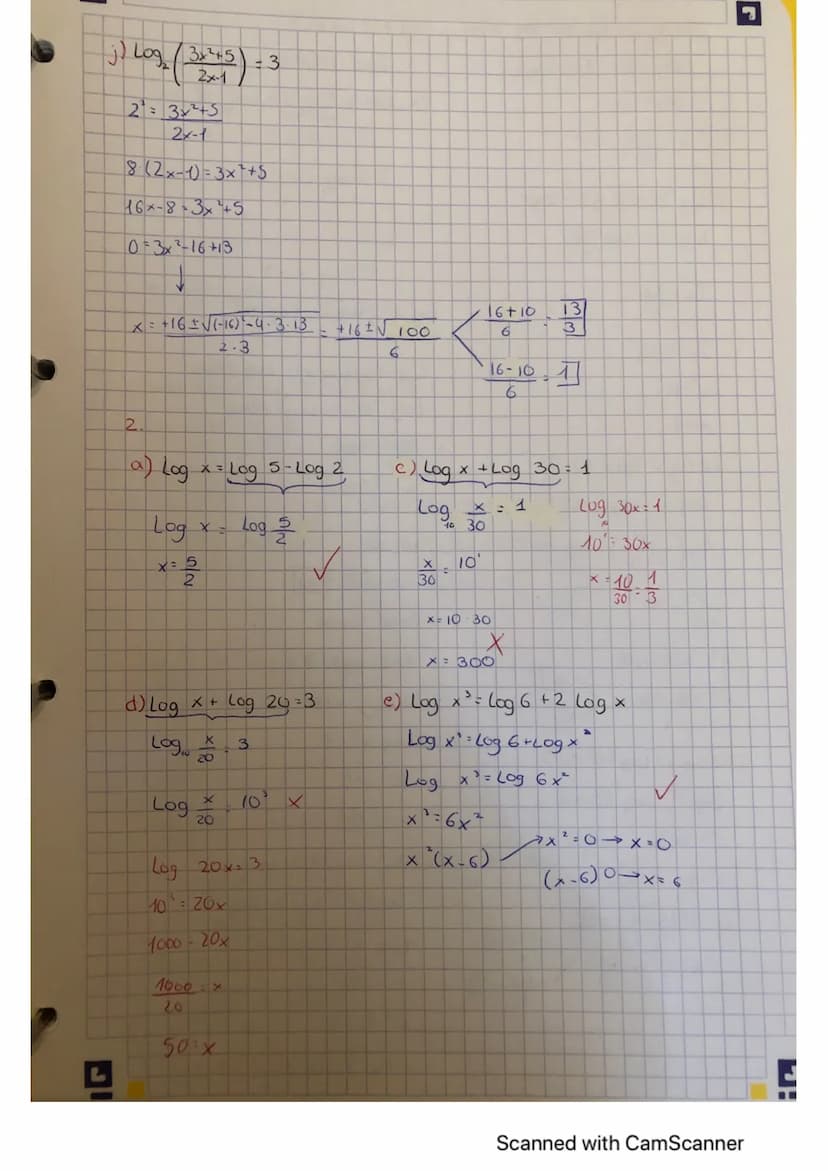 j) Log₂ (3x²+5 / 2x-1) = 3
2³ = 3x²+5 / 2x-1
8 (2x-1) = 3x²+5
16x-8 = 3x²+5
0 = 3x²-16+13
↓
x = +16 ± √(-16)²-4·3·13 / 2·3 = +16 ± √100 / 6
16+10 / 6 = 13/3
16-10 / 6 = 1
2.
a) Log x = Log 5 - Log 2
Log x = Log 5/2
x = 5/2 ✓
c) Log x + Log 30 = 1
Log₁₀ x/30 = 1
x/30 = 10¹
x = 10·30
x = 300 X
Log 30x = 1
10¹ = 30x
x = 10/30 = 1/3
d) Log x + Log 20 = 3
Log₁₀ x/20 = 3
Log x/20 = 10³ x
Log 20x = 3
10³ = 20x
1000 = 20x
1000/20 = x
50 = x
e) Log x³ = Log 6 + 2 Log x
Log x³ = Log 6 + Log x²
Log x³ = Log 6x² ✓
x³ = 6x²
x²(x-6) → x² = 0 → x = 0
(x-6) 0 → x = 6
Scanned with CamScanner